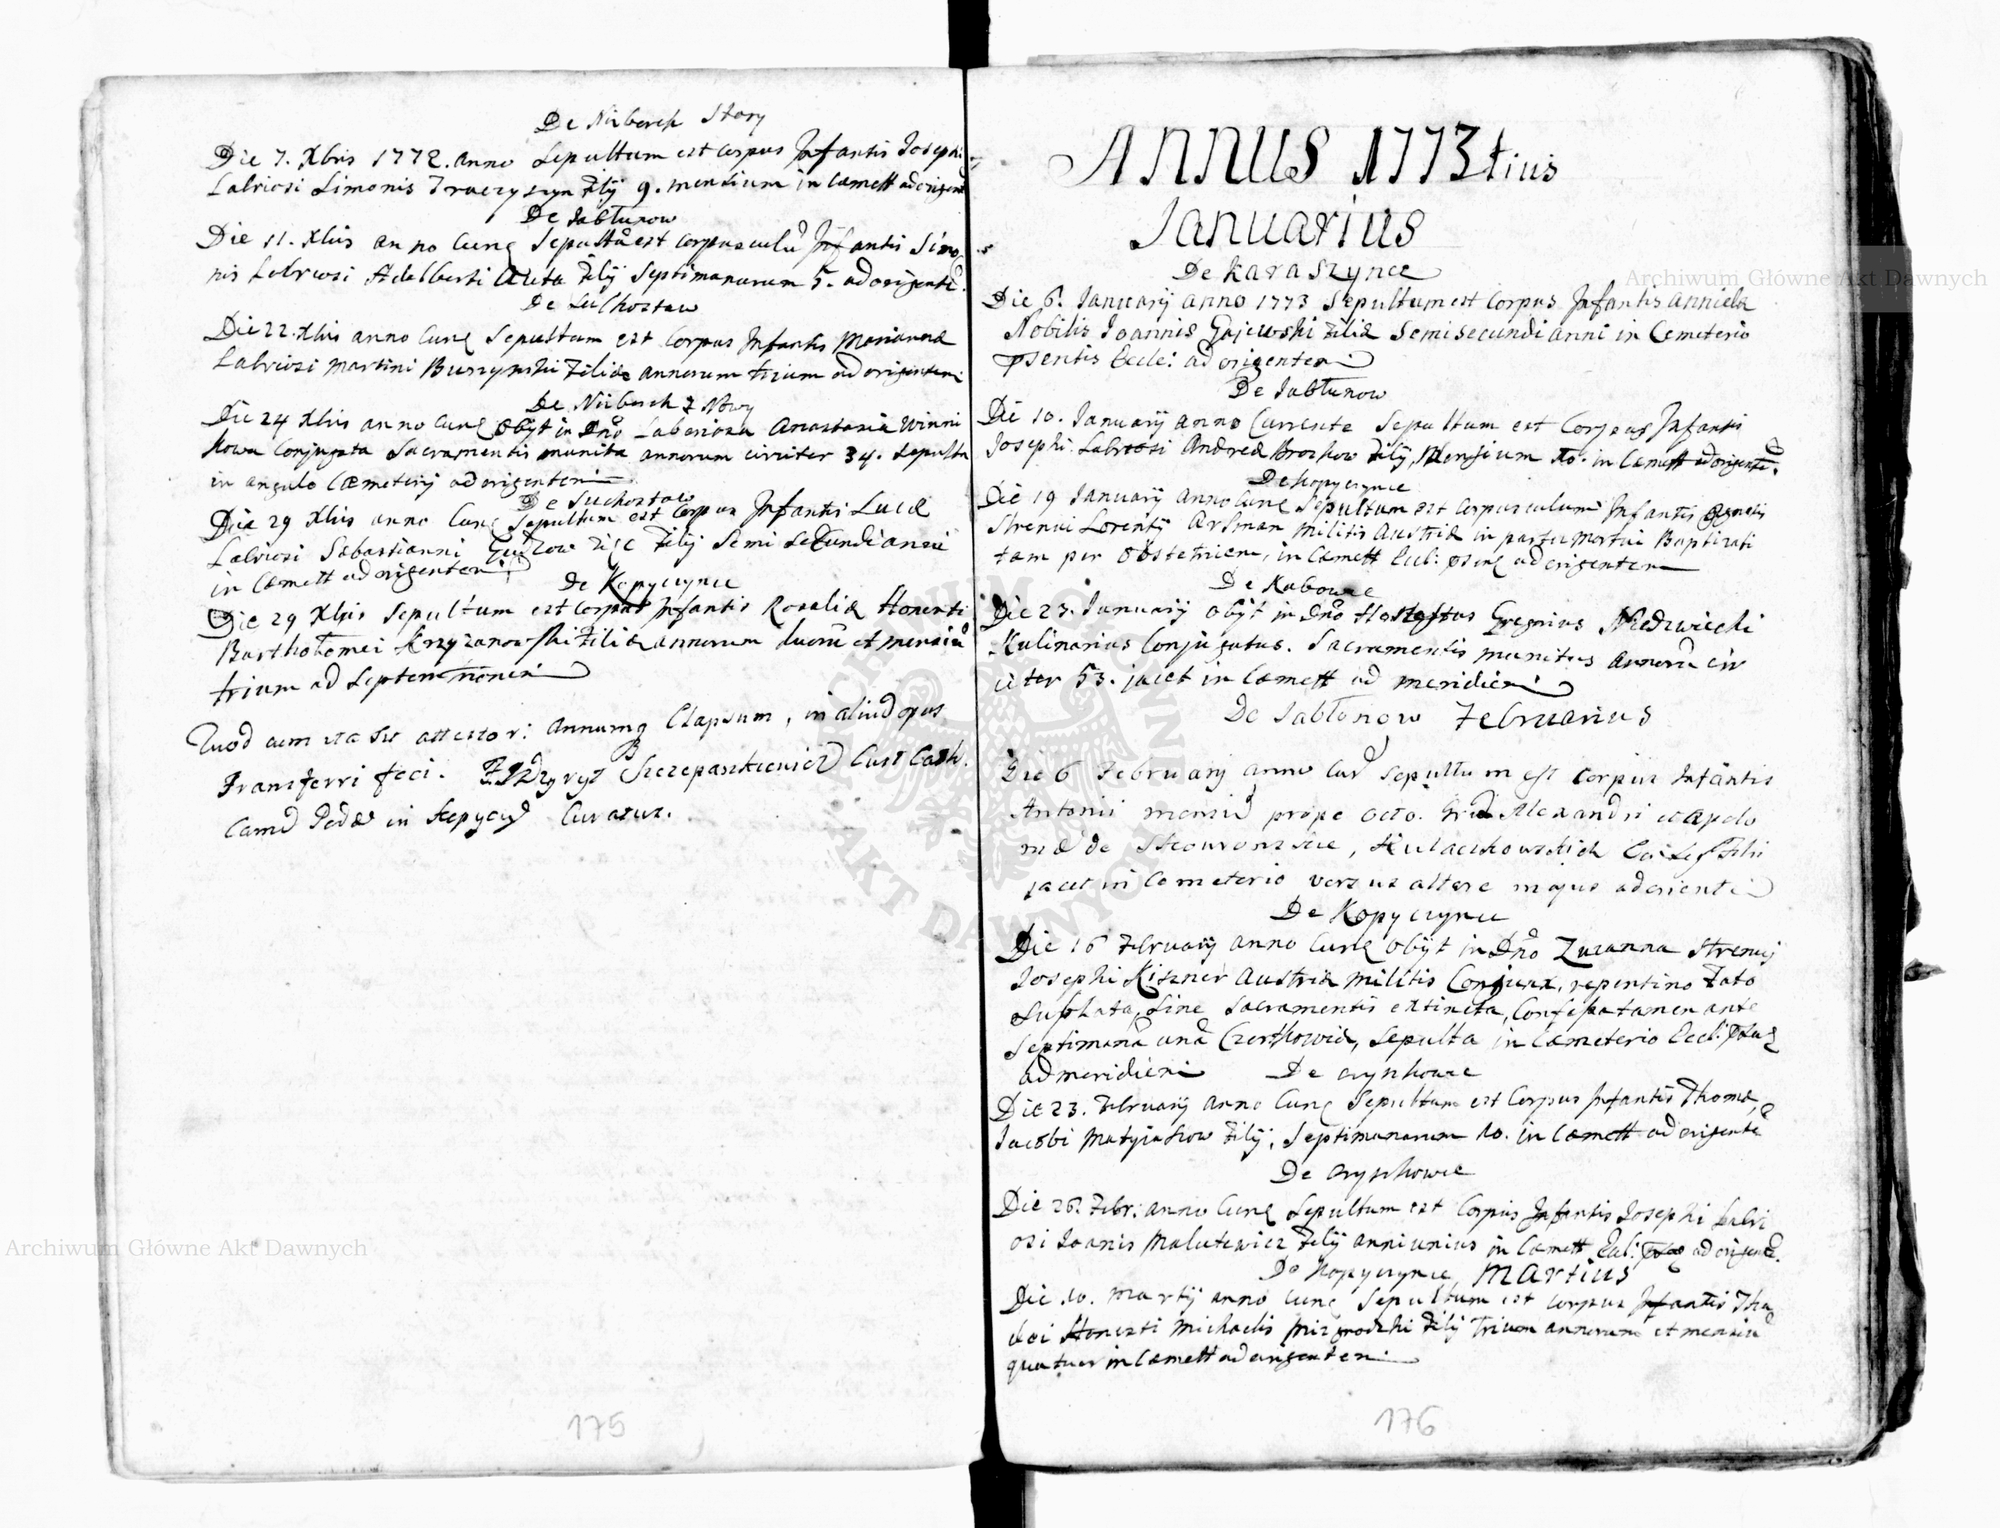 De Niżborek Stary
Die 7. Xbris 1772. anno Sepultum est Corpus Infantis Josephi
Labriosi Simonis Traczyszyn Filij 9. mensium in Cæmett ad origent
De Jabłunow
Die 11. Xbris anno Curę Sepultũ est corpusculũ Infantis Simo
nis Labriosi Adalberti Filij Septimanarum 5. ad origentẽ.
De Suchostaw
Die 22. Xbris anno Curę Sepultum est Corpus Infantis Mariannæ
Labriosi Martini Buszynski Filiæ annorum trium ad origentem
De Niżborek Nowy
Die 24 Xbris anno Curę Obijt in Dño Laboriosa Anastasia Winni
kowa Conjugata Sacramentis munita annorum circiter 34. Sepulta
in angulo Cæmeterij ad origentem
De Suchostaw
Die 29 Xbris anno Curę Sepultum est Corpus Infantis Lucæ
Labriosi Sebastianni Filij Semi Secundi anni
in Cæmett ad origentem
De Kopyczynce
Die 29 Xbris Sepultum est Corpus Infantis Rosaliæ Honesti
Barthołomei Krzyzanowski Filiæ annorum duorũ et mensiũ
trium ad Septemtrionem
Quod cum ita sit attestor: annumq Elapsum, in aliud opus
Transferri feci. Szczepaszkiewicz Cust Cath.
Camẽ in Kopycẽ Curatus.
175
ANNUS 1773tius
Januarius
De Karaszynce
Die 6. Januarij anno 1773 Sepultum est Corpus Infantis Annielæ
Nobilis Joannis Gajewski Filiæ Semisecundi anni in Cemeterio
psentis Eccle: ad origentem
De Jabłunow
Die 10. Januarij anno Currente Sepultum est Corpus Infantis
Josephi Labriosi Andreæ Brozkow Filij, Mensium 10. in Cæmett ad origentẽ.
De Kopyczynce
Die 19 Januarij anno Curę Sepultum est Corpusculum Infantis Agnetis
Strenui Lorentij Arsman militis Austriæ in partu mortui Baptizati
tam per obstetricem, in Cæmett Eccl: psenę ad origentem
De Kabowce
Die 23. Januarij obijt in Dño Honestus Gregrius Niedzwiecki
Kulinarius Conjugatus. Sacramentis munitus annorũ cir
citer 53. jacet in Cæmett ad meridiem
De Jabłonow Februarius
Die 6 Februarij anno Curẽ Sepultum est Corpus Infantis
Antonii mensiũ prope octo. Alexandri et Apolo
niæ de Skowronskie, Kulaczkowskich Filii
jacet in Cemeterio versus altare majus ad orientẽ
De Kopyczynce
Die 16 Februarij anno Curę Obijt in Dño Zuzanna Strenuj
Josephi Kiszner Austriæ militis Conjunx, repentino Fato
Sublata, Sine Sacramentis extincta, Confessa tamen ante
Septimanã unã Czortkoviæ, Sepulta in Cæmeterio Eccl: psenę
ad meridiem De Oryszkowce
Die 23. Februarij anno Curę Sepultum est Corpus Infantis Thomæ,
Jacobi Matyiasow Filij, Septimanarum 10. in Cæmett ad origentẽ
De Oryszkowce
Die 26. Febr: anno Curę Sepultum est Corpus Infantis Josephi Labri
osi Joanis Malutewicz Filij anni unius in Cæmett Eccl: psenę ad origentẽ.
De Kopyczynce, Martius
Die 10. Martij anno Curę Sepultum est Corpus Infantis Tha
dæi Honesti Michaelis Mirgrodzki Filij Trium annorum et mensiũ
quatuor in Cæmett ad origentem
176
Archiwum Główne Akt Dawnych
Archiwum Główne Akt Dawnych
ARCHIWUM GŁÓWNE AKT DAWNYCH